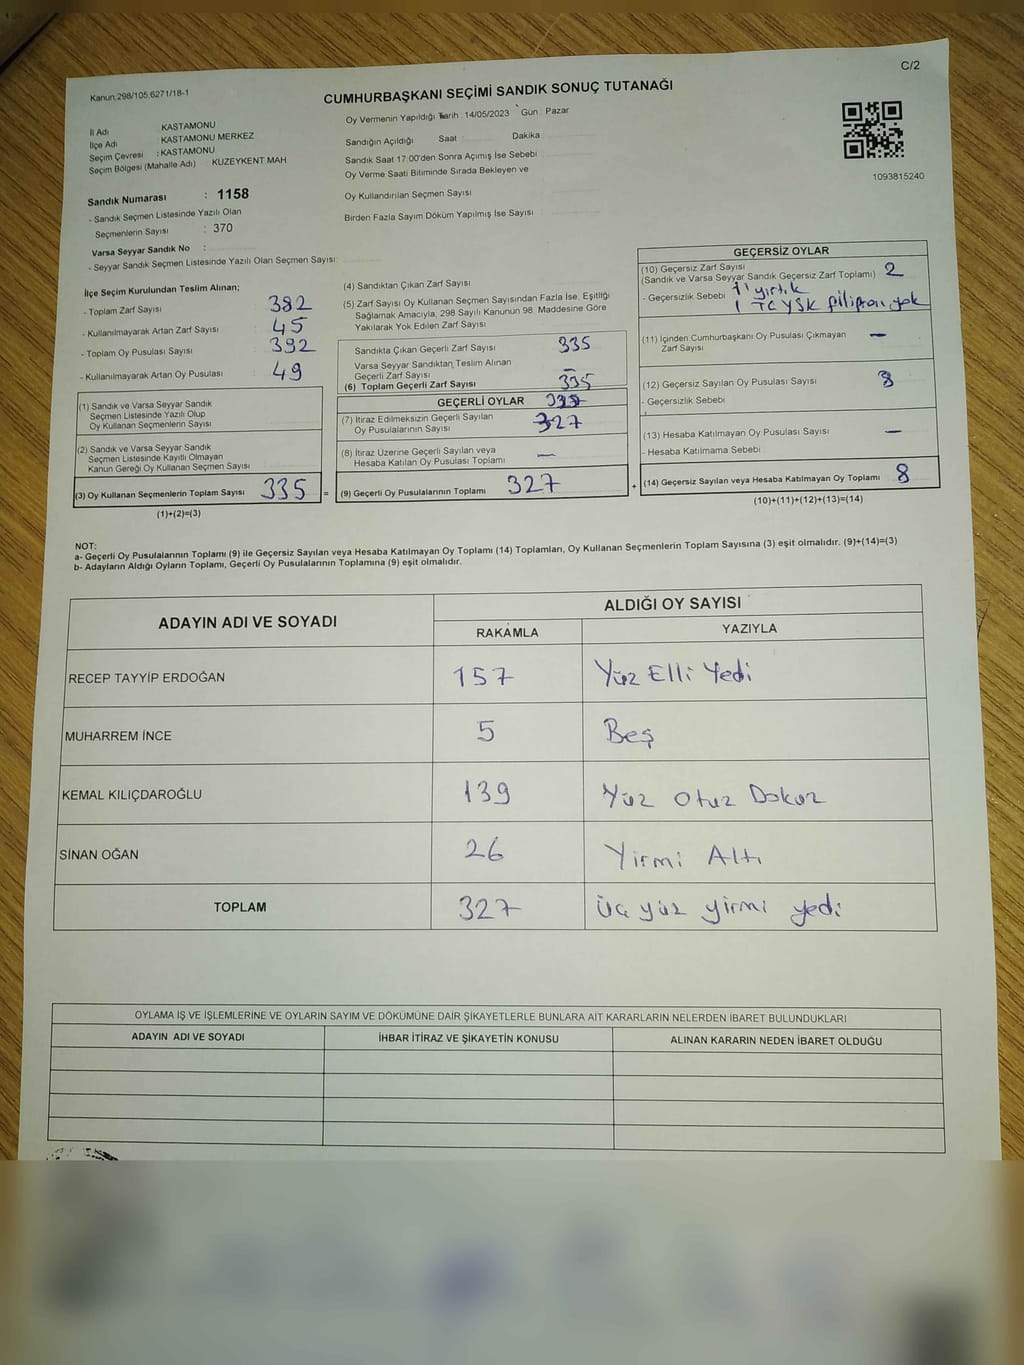 C/2
Kanun:298/105,6271/18-1
CUMHURBAŞKANI SEÇİMİ SANDIK SONUÇ TUTANAĞI
İl Adı : KASTAMONU
İlçe Adı : KASTAMONU MERKEZ
Seçim Çevresi : KASTAMONU
Seçim Bölgesi (Mahalle Adı) : KUZEYKENT MAH
Sandık Numarası : 1158
- Sandık Seçmen Listesinde Yazılı Olan
Seçmenlerin Sayısı : 370
Varsa Seyyar Sandık No :
- Seyyar Sandık Seçmen Listesinde Yazılı Olan Seçmen Sayısı:
Oy Vermenin Yapıldığı Tarih : 14/05/2023 Gün : Pazar
Sandığın Açıldığı Saat Dakika
Sandık Saat 17:00'den Sonra Açımış İse Sebebi
Oy Verme Saati Bitiminde Sırada Bekleyen ve
Oy Kullandırılan Seçmen Sayısı
Birden Fazla Sayım Döküm Yapılmış İse Sayısı
1093815240
İlçe Seçim Kurulundan Teslim Alınan;
- Toplam Zarf Sayısı 382
- Kullanılmayarak Artan Zarf Sayısı 45
- Toplam Oy Pusulası Sayısı 392
- Kullanılmayarak Artan Oy Pusulası 49
(1) Sandık ve Varsa Seyyar Sandık
Seçmen Listesinde Yazılı Olup
Oy Kullanan Seçmenlerin Sayısı
(2) Sandık ve Varsa Seyyar Sandık
Seçmen Listesinde Kayıtlı Olmayan
Kanun Gereği Oy Kullanan Seçmen Sayısı
(3) Oy Kullanan Seçmenlerin Toplam Sayısı 335 =
(1)+(2)=(3)
(4) Sandıktan Çıkan Zarf Sayısı
(5) Zarf Sayısı Oy Kullanan Seçmen Sayısından Fazla İse, Eşitliği
Sağlamak Amacıyla, 298 Sayılı Kanunun 98. Maddesine Göre
Yakılarak Yok Edilen Zarf Sayısı
Sandıkta Çıkan Geçerli Zarf Sayısı 335
Varsa Seyyar Sandıktan Teslim Alınan
Geçerli Zarf Sayısı –
(6) Toplam Geçerli Zarf Sayısı 335
GEÇERLİ OYLAR
(7) İtiraz Edilmeksizin Geçerli Sayılan
Oy Pusulalarının Sayısı 327
(8) İtiraz Üzerine Geçerli Sayılan veya
Hesaba Katılan Oy Pusulası Toplamı —
(9) Geçerli Oy Pusulalarının Toplamı 327 +
GEÇERSİZ OYLAR
(10) Geçersiz Zarf Sayısı
(Sandık ve Varsa Seyyar Sandık Geçersiz Zarf Toplamı) 2
- Geçersizlik Sebebi 1' yırtık
1 TC YSK filigranı yok
(11) İçinden Cumhurbaşkanı Oy Pusulası Çıkmayan
Zarf Sayısı —
(12) Geçersiz Sayılan Oy Pusulası Sayısı
- Geçersizlik Sebebi
(13) Hesaba Katılmayan Oy Pusulası Sayısı —
- Hesaba Katılmama Sebebi
(14) Geçersiz Sayılan veya Hesaba Katılmayan Oy Toplamı 8
(10)+(11)+(12)+(13)=(14)
NOT:
a- Geçerli Oy Pusulalarının Toplamı (9) ile Geçersiz Sayılan veya Hesaba Katılmayan Oy Toplamı (14) Toplamları, Oy Kullanan Seçmenlerin Toplam Sayısına (3) eşit olmalıdır. (9)+(14)=(3)
b- Adayların Aldığı Oyların Toplamı, Geçerli Oy Pusulalarının Toplamına (9) eşit olmalıdır.
ADAYIN ADI VE SOYADI ALDIĞI OY SAYISI
RAKAMLA YAZIYLA
RECEP TAYYİP ERDOĞAN 157 Yüz Elli Yedi
MUHARREM İNCE 5 Beş
KEMAL KILIÇDAROĞLU 139 Yüz Otuz Dokuz
SİNAN OĞAN 26 Yirmi Altı
TOPLAM 327 Üç yüz yirmi yedi
OYLAMA İŞ VE İŞLEMLERİNE VE OYLARIN SAYIM VE DÖKÜMÜNE DAİR ŞİKAYETLERLE BUNLARA AİT KARARLARIN NELERDEN İBARET BULUNDUKLARI
ADAYIN ADI VE SOYADI İHBAR İTİRAZ VE ŞİKAYETİN KONUSU ALINAN KARARIN NEDEN İBARET OLDUĞU